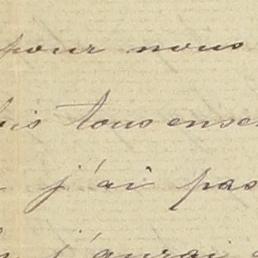 pour nous
tous ense
j'ai pas
j'aurai